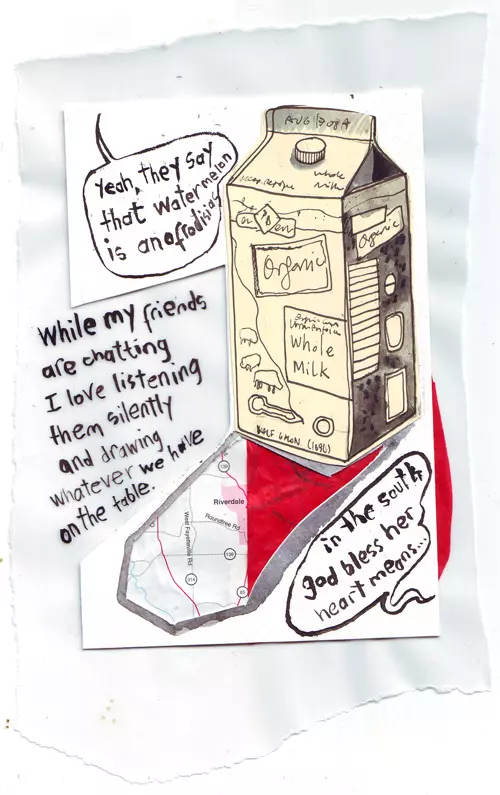 Yeah, they say
that watermelon
is an afrodisiac
While my friends
are chatting
I love listening
them silently
and drawing
whatever we have
on the table.
whole
Milk
Organic
Organic
Whole
Milk
HALF GALLON
139
Riverdale
Roundtree Rd
West Fayetteville Rd
138
314
85
in the south
god bless her
heart means...